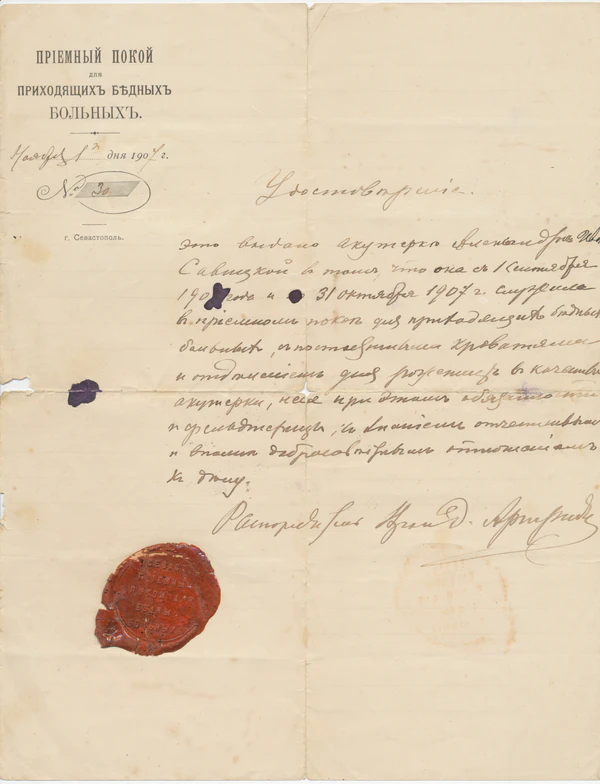 ПРІЕМНЫЙ ПОКОЙ
для
ПРИХОДЯЩИХЪ БѢДНЫХЪ
БОЛЬНЫХЪ.
Ноября 1 дня 1907 г.
№ 30
г. Севастополь.
Удостовѣреніе.
это выдано акушеркѣ Александрѣ
Савицкой в томъ, что она съ 1 Сентября
190 года и 31 октября 1907 г. служила
в пріемномъ покоѣ для приходящихъ бѣдныхъ
больныхъ, съ постоянными кроватями
и отдѣленіемъ для роженицъ в качествѣ
акушерки, неся при этомъ обязанности
и фельдшерицы, со знаніем
и вполнѣ добросовѣстнымъ отношеніемъ
къ дѣлу.